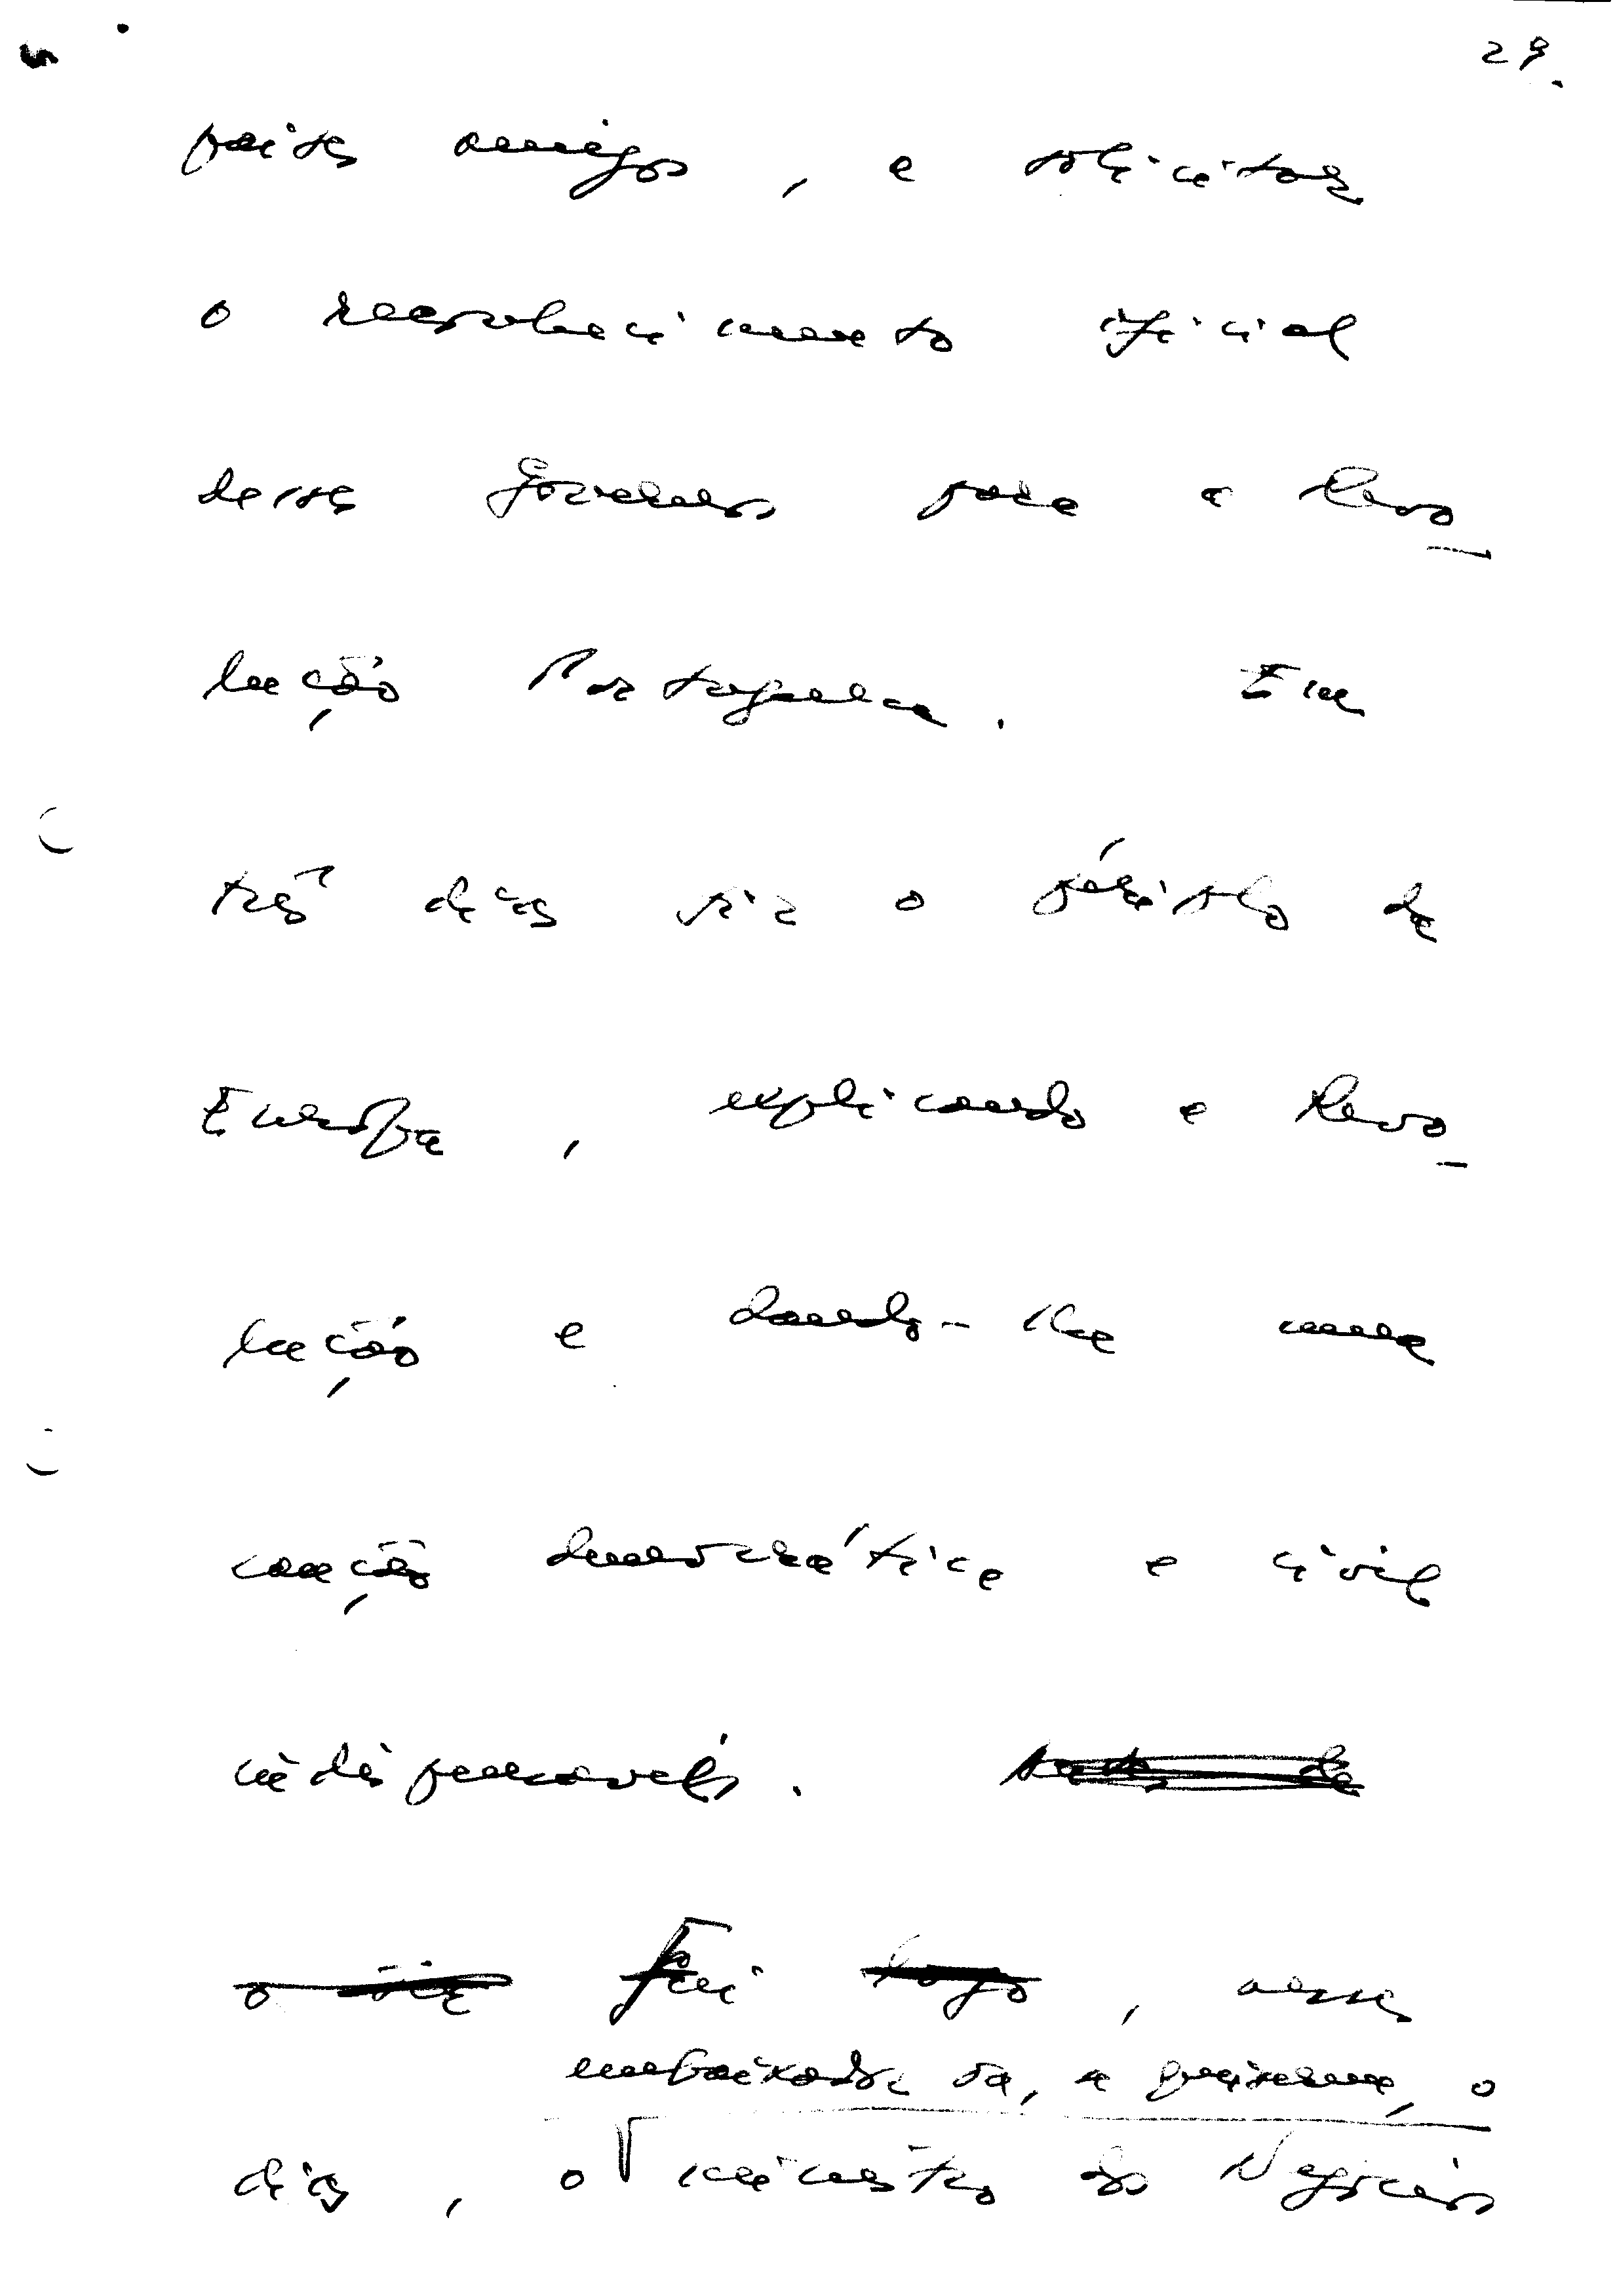 29.
países amigos, e solicitar
o reconhecimento oficial
desses Governos para a Revo-
lução Portuguesa. Em
três dias fiz o périplo da
Europa, explicando a Revo-
lução e dando-lhe uma
caução democrática e civil
indispensáveis.
Fui logo, nesses
embaixador ou, se quiserem, o
dias, o ministro dos Negócios